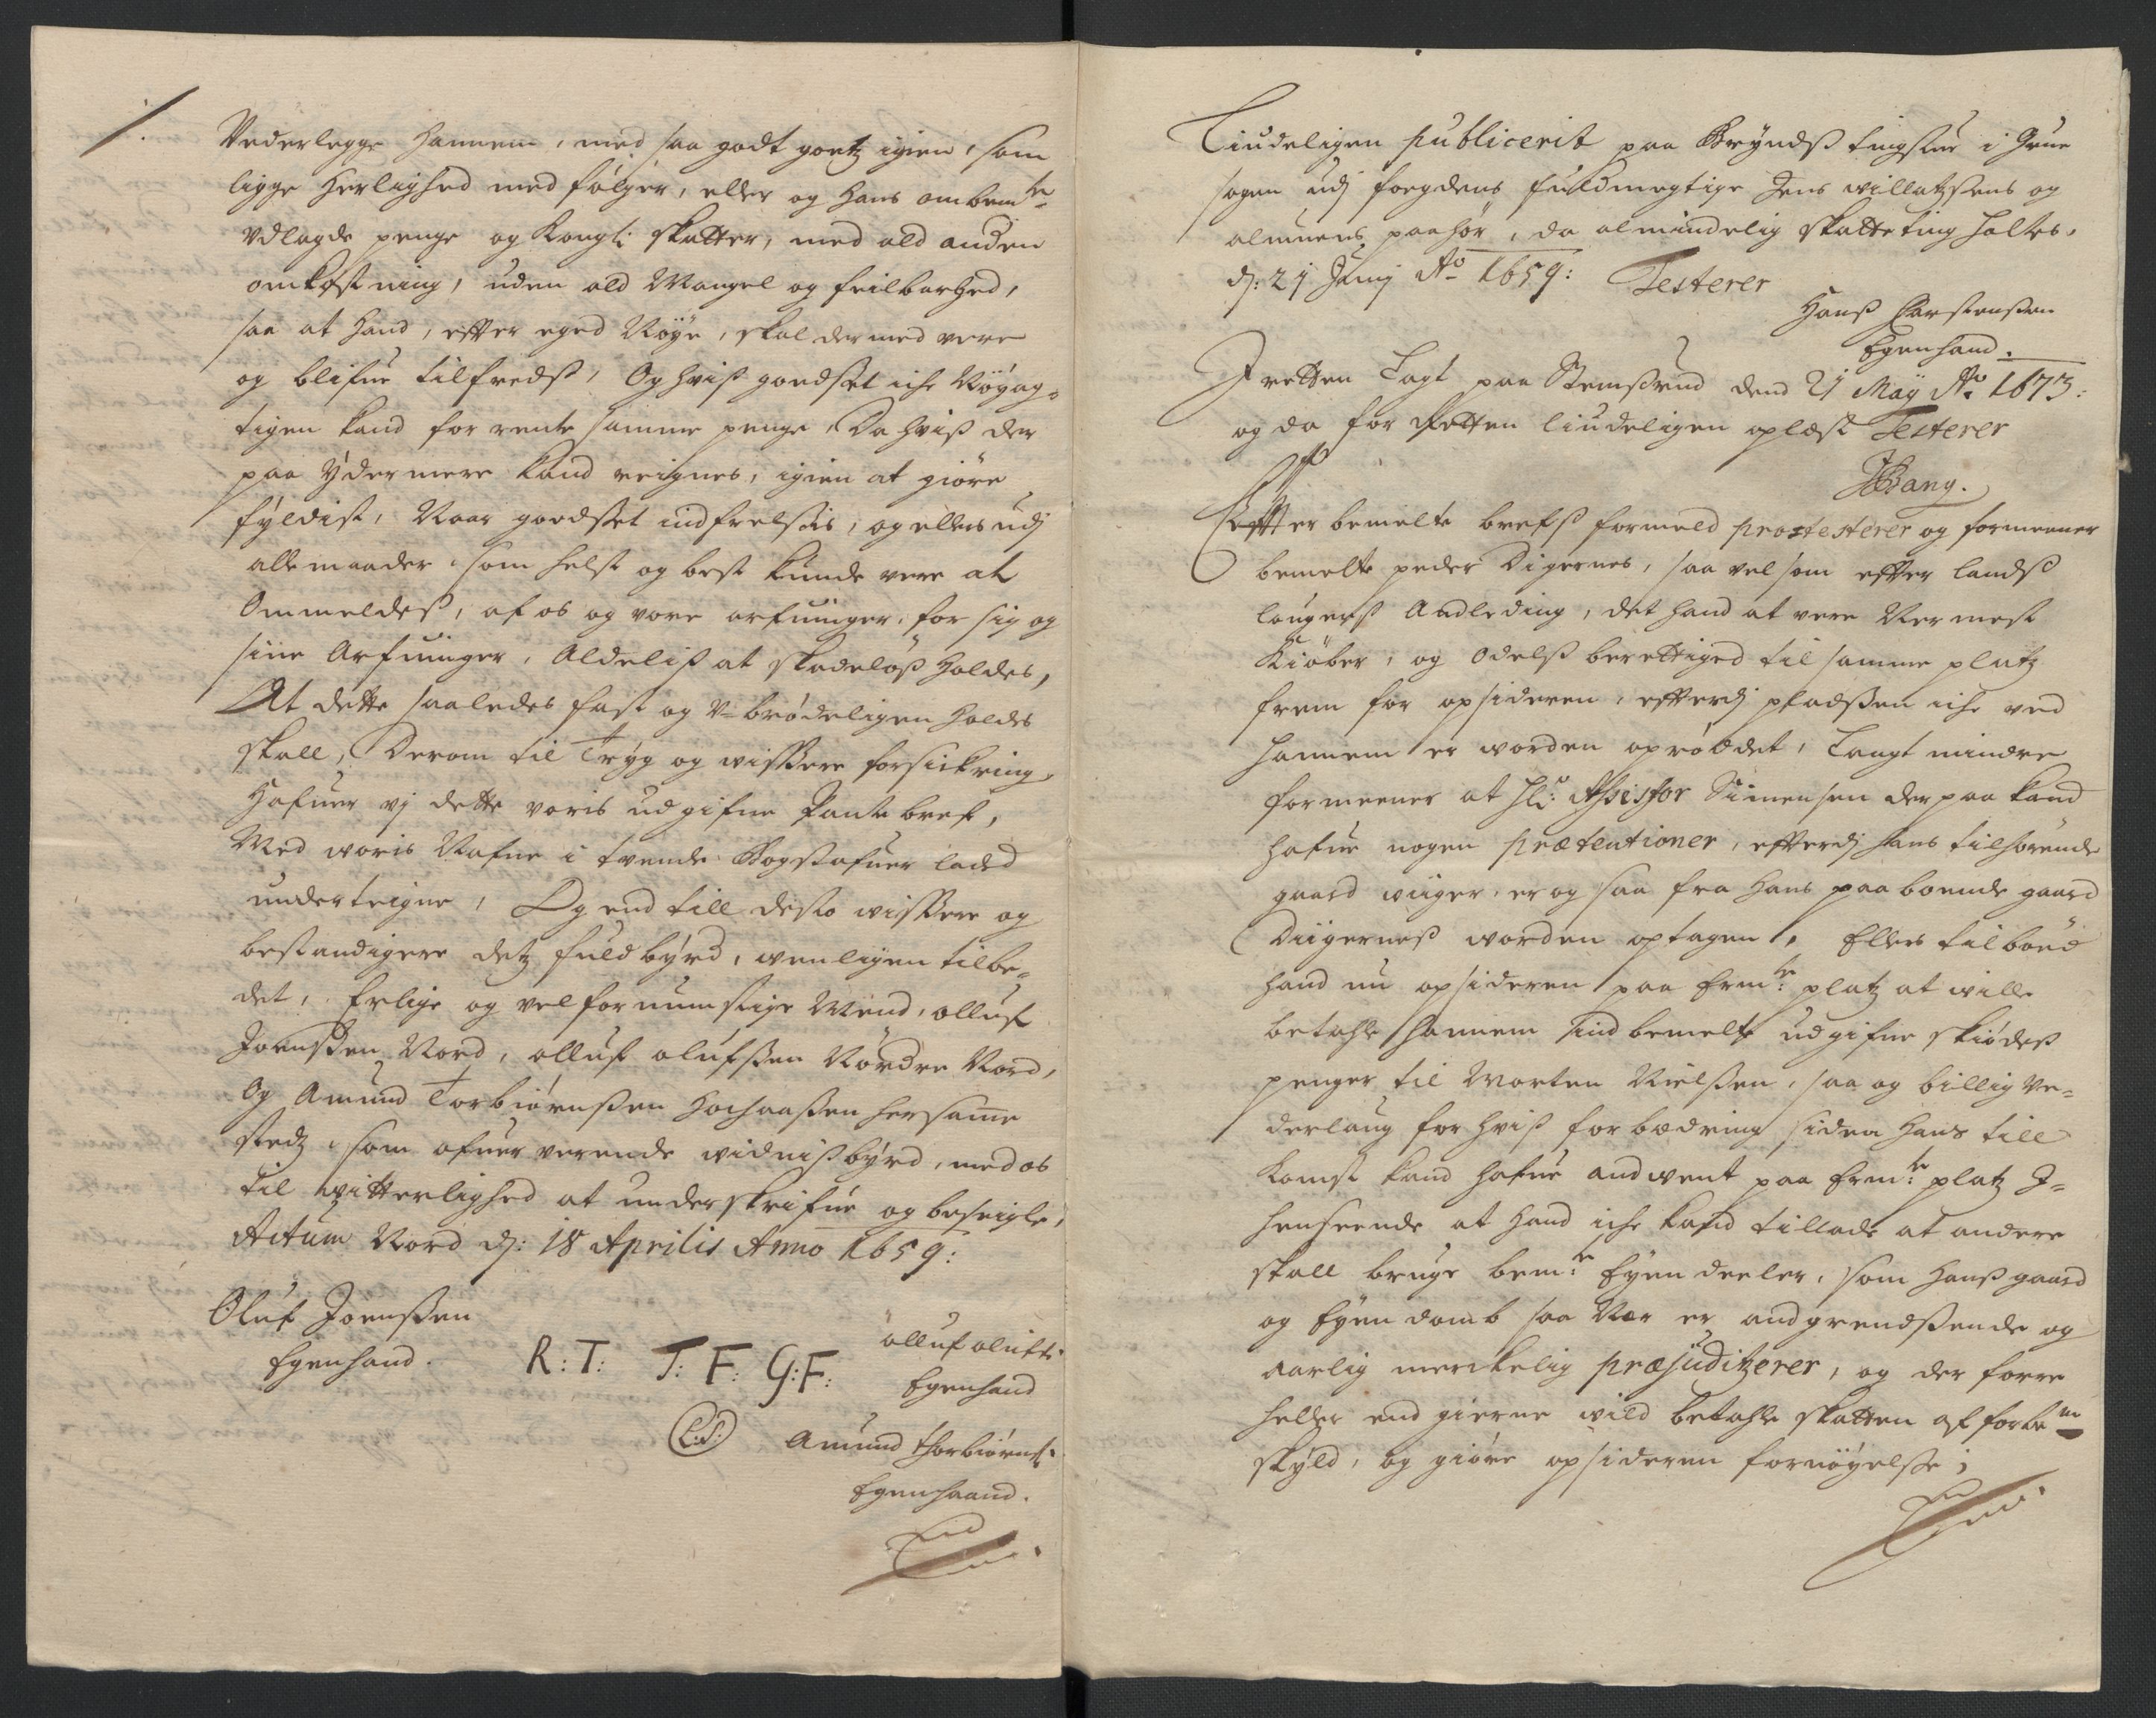 1.
Vederlegge hannem, med saa godt goetz igien, som
ligge Herlighed med følger, eller og hans ombemte
Vdlagde penge og Kongl: skatter, med ald anden
omkostning, uden ald Mangel og feilbarhed,
saa at hand, effter eged Nøye, skal dermed vere
og blifue tilfredss, Og hviss goedset iche Nøyag=
tigen kand for rente samme penge, Da hviss der
paa ydermere kand reignes, igien at giøre
fyldist, Naar goedset indfrelsis, og ellers udj
alle maader som helst og best kunde vere at
Ommeldess, af os og vore arfuinger, for sig og
sine Arfuinger, Aldeliss at skadeløss holdes,
At dette saaledes fast og V-brødeligen holdes
skall, Derom til Tryg og wissere forsickring,
Hafuer vj dette voris udgifne Pante bref,
Med woris Nafne i tvende Bogstafuer laded
underteigne, Og end till desto wissere og
bestandigere detz fuldbyrd, wenligen tilbe=
det, Erlige og velfornumstige Mend, olluf
Joenssen Nord, olluf olufssen Nordre Nord,
Og Amund Torbiørnssen Hochaassen hersamme
stedz som ofueruerende widnissbyrd, med os
til witterlighed at underskrifue og beseigle,
Actum Nord dj: 18 Aprilis Anno 1659:
Oluf Joenssen
Egenhand.
R: T: T: F: G: F:
olluf olufs:
Egenhand
L:S:
Amund Thorbiørns:
Egenhaand.
Liudeligen publicerit paa Bryndss tingstue i Grue
sogen udj foegdens fuldmegtige Jens willatzsens og
almuens paahør, da almindelig skatteting holtes,
dj: 21 Junij Ao 1659: Testerer
Hanss Carstenssen
Egenhand.
J retten Lagt paa Stemssrud dend 21 Maÿ Ao 1673:
og da for Retten liudeligen oplest Testerer
HBang.
Effter bemelte brefss formeld protesterer og formeener
bemelte peder Digernes, saa vel som effter landss
lougenss Andleding, det hand at vere Nermest
Kiøber, og odelss berettiged til samme platz
frem for opsideren, effterdj pladssen iche ved
hannem er worden oprøddet, Langt mindre
formeener at Hr: Assessor Simensen derpaa kand
hafue nogen prætentioner, effterdj hans tilhørende
gaard wiiger, er og saa fra hans paaboende gaard
Diigerness worden optagen, Ellers tilbød
hand nu opsideren paa Ermte: platz at wille
betahle hannem sind bemelte udgifne skiødess
penger til Morten Nielssen, saa og billig Ve=
derlaug for hviss forbedring siden hans till
komst kand hafue andwent paa Ermte: platz J=
henseende at hand iche kand tillade at andere
skall bruge bemte: Eyendeeler, som hanss gaard
og Eyendomb saa Ner er andgrendssende og
aarlig merckelig præjuditzerer, og der forre
heller end gierne wild betahle skatten af forbem
skyld, og giøre opsideren fornøyelse;